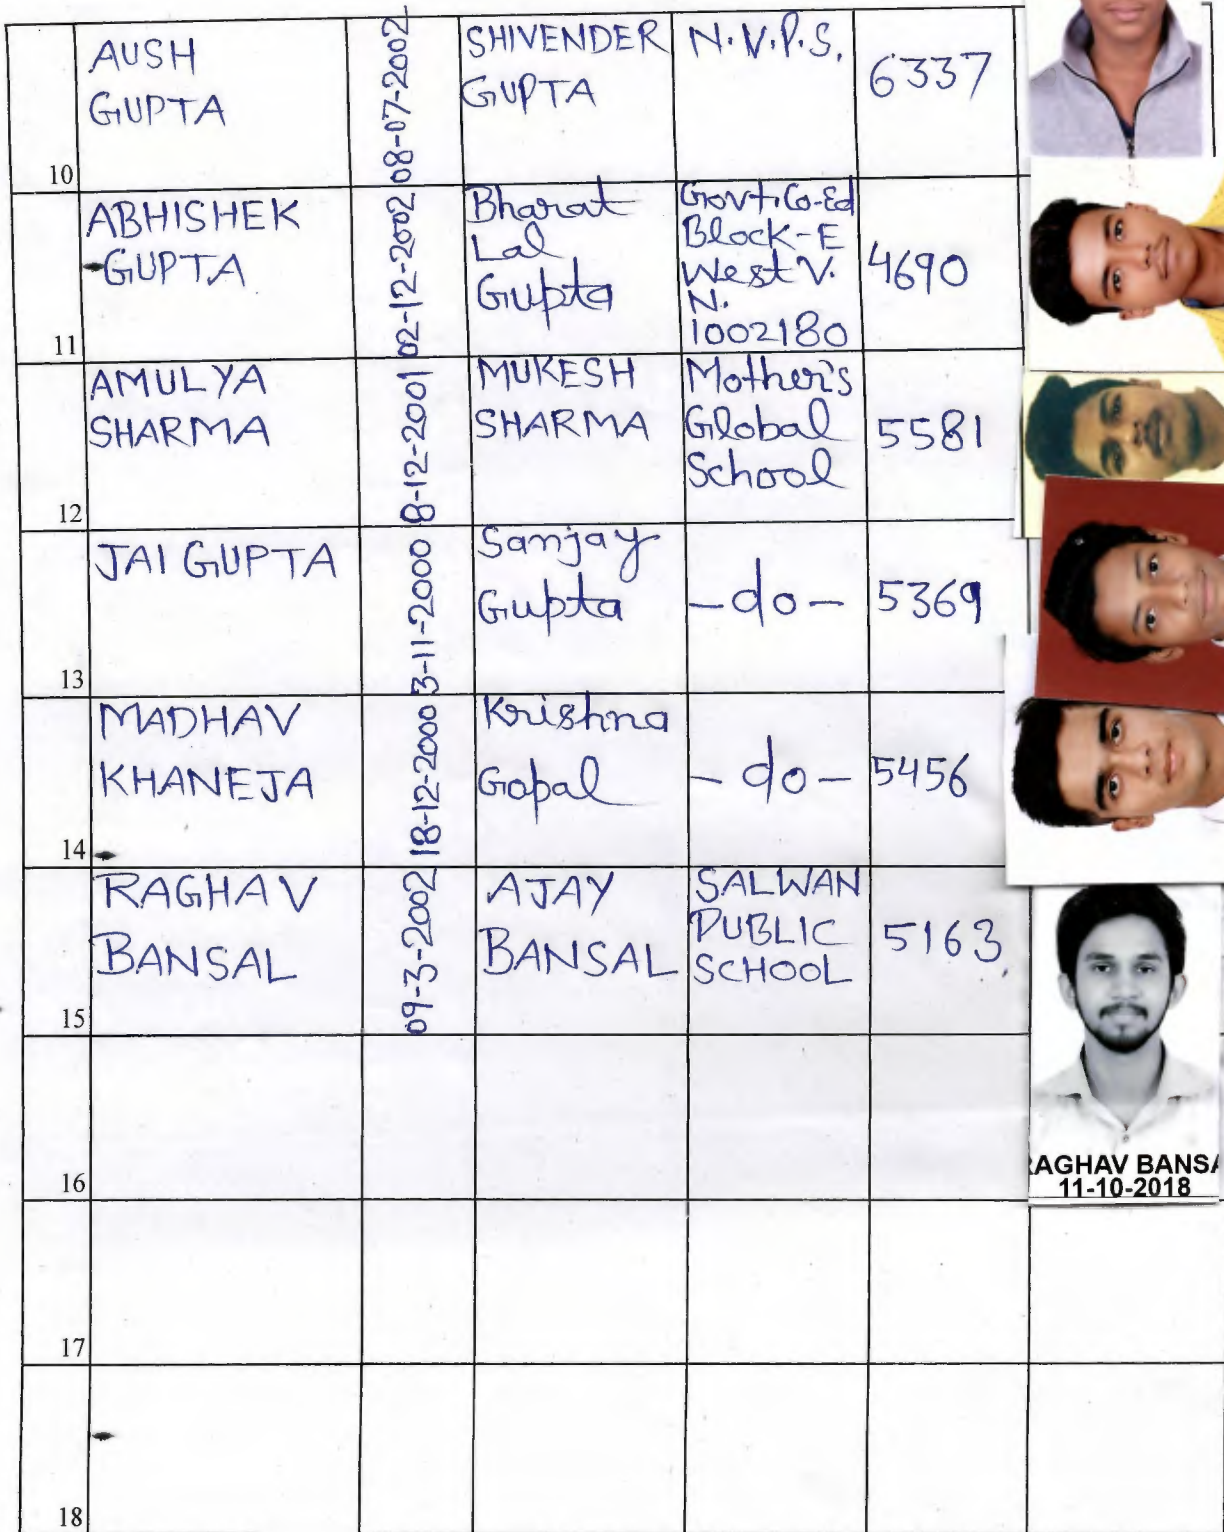 AUSH
GUPTA
08-07-2002
SHIVENDER
GUPTA
N.V.P.S.
6337
10
ABHISHEK
GUPTA
02-12-2002
Bharat
Lal
Gupta
Govt. Co-Ed
Block-E
West V.
N.
1002180
4690
11
AMULYA
SHARMA
8-12-2001
MUKESH
SHARMA
Mother's
Global
School
5581
12
JAI GUPTA
3-11-2000
Sanjay
Gupta
-do-
5369
13
MADHAV
KHANEJA
18-12-2000
Krishna
Gopal
-do-
5456
14
RAGHAV
BANSAL
09-3-2002
AJAY
BANSAL
SALWAN
PUBLIC
SCHOOL
5163
15
RAGHAV BANSA
11-10-2018
16
17
18